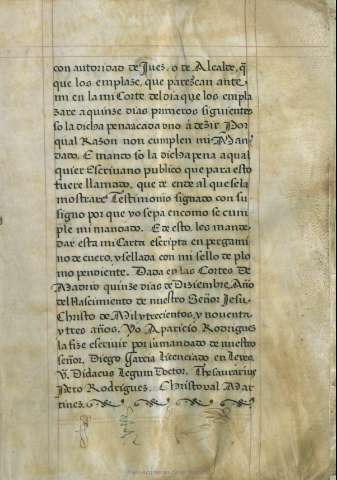 con autoridad de Juez, o de Alcalde, q̃
que los emplaze, que parezcan ante
mi en la mi Corte del dia que los empla
zare a quinze dias primeros siguientes
so la dicha pena cada uno á dezir Por
qual Razon non cumplen mi Man
dado. E mando so la dicha pena a qual
quier Escrivano publico que para esto
fuere llamado, que de ende al que se la
mostrare Testimonio signado con su
signo por que yo sepa en como se cum
ple mi mandado. E de esto, les mande
dar esta mi Carta escripta en pergami
no de cuero, y sellada con mi sello de plo
mo pendiente. Dada en las Cortes De
Madrid quinze dias de Diziembre, Año
del Nascimiento de nuestro Señor Jesu
Christo de Mil y trecientos, y noventa
y tres años. Yo Aparicio Rodrigues
la fize escrivir por su mandado de nuestro
señor. Diego Garcia Licenciado en Leyes.
V. Didacus Legum Doctor. Thesaurarius
Pero Rodriguez. Christoval Mar
tinez.